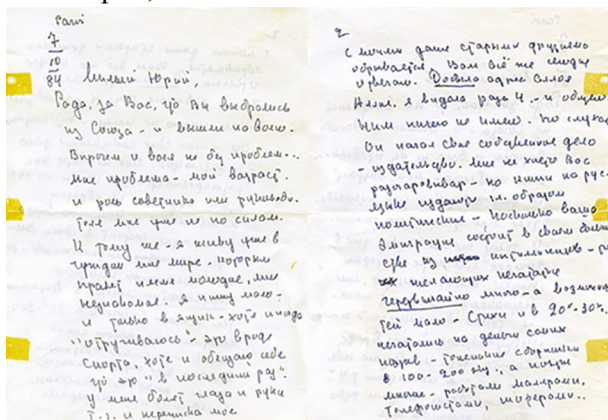 Paris
7
10
84
Милый Юрий,
Рада, за Вас, что Вы выбрались
из Союза – и вышли на волю.
Впрочем и воля не без проблем...
Мне проблема – мой возраст
и роль советника или руководи-
теля мне уже не по силам.
К тому же – я живу уже в
чуждом мне мире. которым
правят имена молодые, мне
незнакомые. я пишу мало –
и только в ящик – хотя иногда
"отпечатываюсь –
спорта, хотя и обещаю себе
что это – в последний раз".
у меня болят глаза и рука
и переписка мое
2
С моими даже старыми друзьями
обрывается. Вам всё же сегодня
отвечаю.
Аллой. я видала раза 4 – и общего
с ним ничего не имею. по слухам
Он начал свое собственное дело
– издательство. Мне не хочется Вас
разочаровывать – но книги на рус.
языке издают гл. образом
политические – поскольку ваша
эмиграция состоит в своем больш
стве из интеллигентов –
желающих печатать
чрезвычайно много – а возможнос
тей мало – Стихи и в 20х–30х.
печатались на деньги самих
поэтов – тоненькие сборники
в 100–200 экз., а поэты
многие – работали малярами,
телефонистами, шоферами..